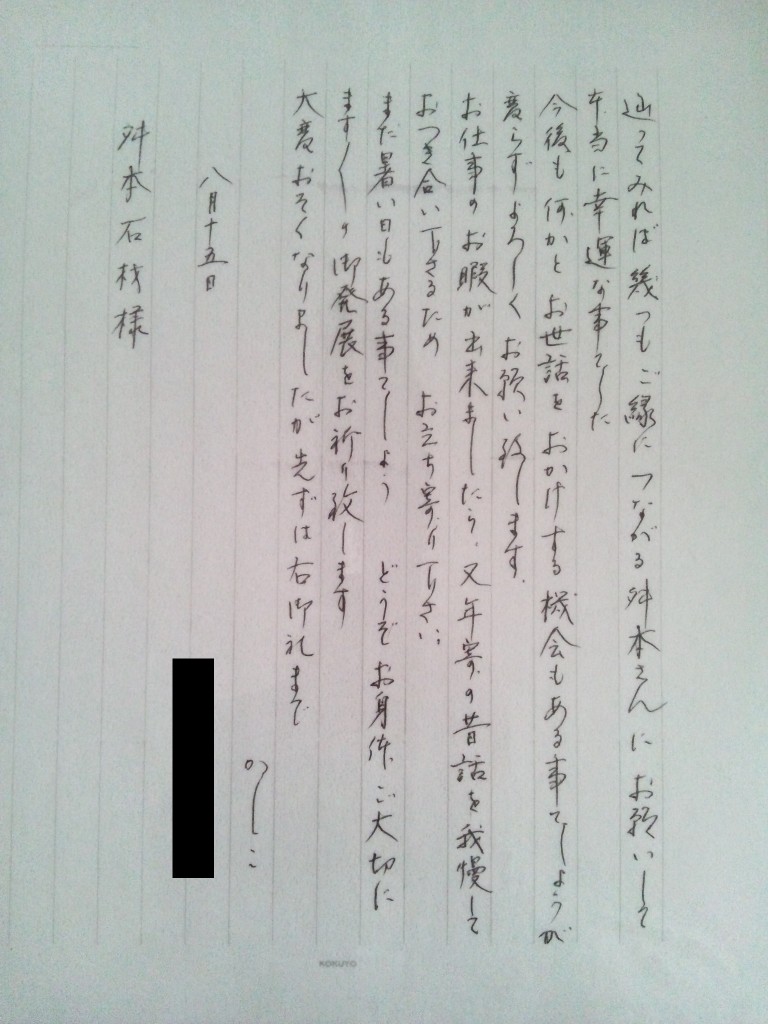 辿ってみれば幾つもご縁につながる舛本さんにお願いして
本当に幸運な事でした
今後も何かとお世話をおかけする機会もある事でしょうが
変らずよろしくお願い致します。
お仕事のお暇が出来ましたら、又年寄の昔話を我慢して
おつき合い下さるため お立ち寄り下さい。
まだ暑い日もある事でしょう どうぞお身体ご大切に
ます〱の御発展をお祈り致します
大変おそくなりましたが先ずは右御礼まで
かしこ
八月十五日
舛本石材様
KOKUYO